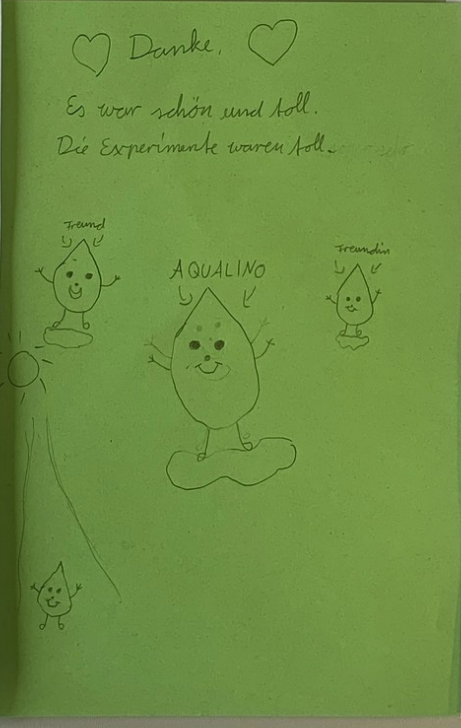 Danke.
Es war schön und toll.
Die Experimente waren toll.
Freund
AQUALINO
Freundin